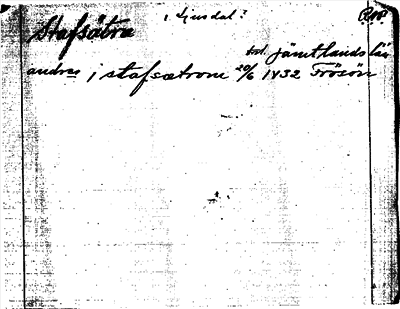 Stafsätra i Ljusdal?
Jämtlands län
andres j stafsætrom 20/6 1432 Frösön